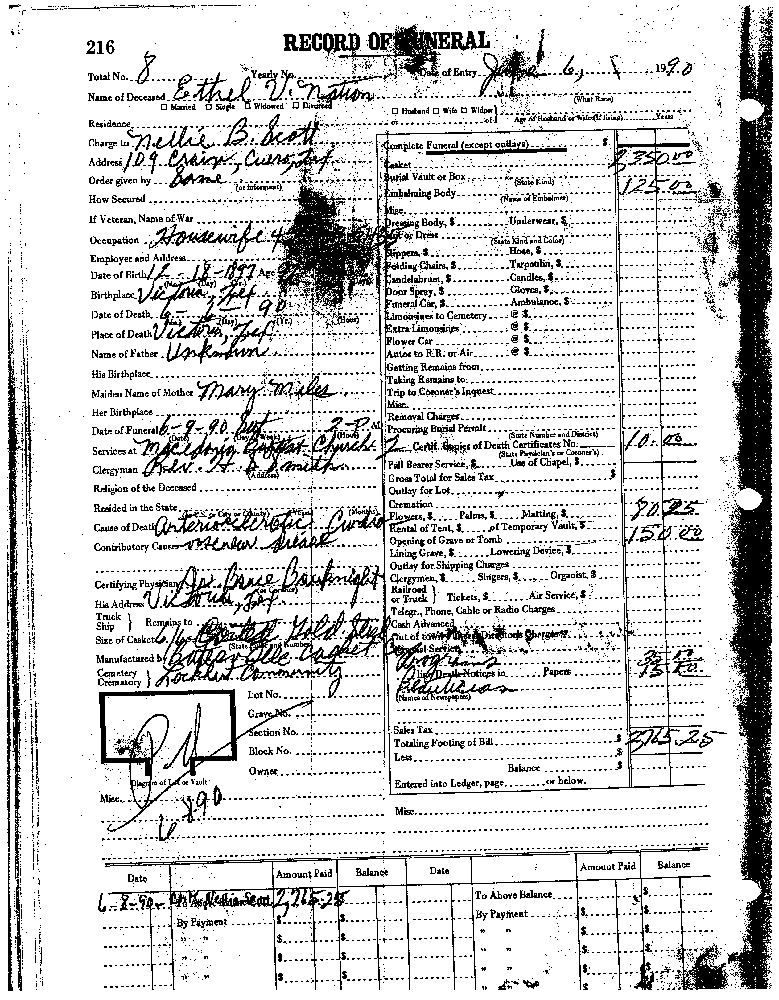 216 RECORD OF FUNERAL
Total No. 8 Yearly No. Date of Entry 6, 1990
Name of Deceased Ethel V. Nation
☐ Married ☐ Single ☐ Widowed ☐ Divorced (What Race)
☐ Husband ☐ Wife ☐ Widow or of Age of Husband or Wife (if living) Years
Residence
Charge to Nellie B. Scott
Address 109 Crain, Cuero, Tex
Order given by Same
(or Informant)
How Secured
If Veteran, Name of War
Occupation Housewife
Employer and Address
Date of Birth 12-18-1897 Age
Birthplace Victoria, Tex
Date of Death 6- 90
Place of Death Victoria, Tex
Name of Father Unknown
His Birthplace
Maiden Name of Mother Mary Miles
Her Birthplace
Date of Funeral 6-8-90 2 P.M.
Services at Baptist Church
Clergyman Rev. H. Smith
(Address)
Religion of the Deceased
Resided in the State
Cause of Death Arteriosclerotic Cardio
Contributory Causes vascular disease
Certifying Physician Dr. Bouknight
His Address Victoria, Tex
Truck Ship } Remains to
Size of Casket Gold
Manufactured by Casket
Cemetery Crematory } Lockhart Community
Lot No.
Grave No.
Section No.
Block No.
Owner
Diagram of Lot or Vault
Misc.
6 8 90
Complete Funeral (except outlays) $
Casket 2,350.00
Burial Vault or Box
(State Kind)
Embalming Body 125.00
(Name of Embalmer)
Misc.
Dressing Body, $ Underwear, $
Suit or Dress
(State Kind and Color)
Slippers, $ Hose, $
Folding Chairs, $ Tarpaulin, $
Candelabrum, $ Candles, $
Door Spray, $ Gloves, $
Funeral Car, $ Ambulance, $
Limousines to Cemetery @ $
Extra Limousines @ $
Flower Car @ $
Autos to R.R. or Air @ $
Getting Remains from
Taking Remains to
Trip to Coroner's Inquest
Misc.
Removal Charges
Procuring Burial Permit
(State Number and District)
Certif. Copies of Death Certificates No. 10.00
(State Physician's or Coroner's)
Pall Bearer Service, $ Use of Chapel, $
Gross Total for Sales Tax $
Outlay for Lot
Cremation
Flowers, $ Palms, $ Matting, $ 80.25
Rental of Tent, $ of Temporary Vault, $
Opening of Grave or Tomb 150.00
Lining Grave, $ Lowering Device, $
Outlay for Shipping Charges
Clergymen, $ Singers, $ Organist, $
Railroad or Truck } Tickets, $ Air Service, $
Telegr., Phone, Cable or Radio Charges
Cash Advanced
Out of town Funeral Directors Charges
Personal Service
Programs
Death Notices in Papers
(Names of Newspapers)
Beautician
Sales Tax
Totaling Footing of Bill $ 2,765.25
Less $
Balance $
Entered into Ledger, page or below.
Misc.
Date Amount Paid Balance Date Amount Paid Balance
6-8-90- Nellie Scott 2,765.25 $ To Above Balance $
By Payment $ $ By Payment $ $
" " $ $ " " $ $
" " $ $ " " $ $
" " $ $ " " $ $